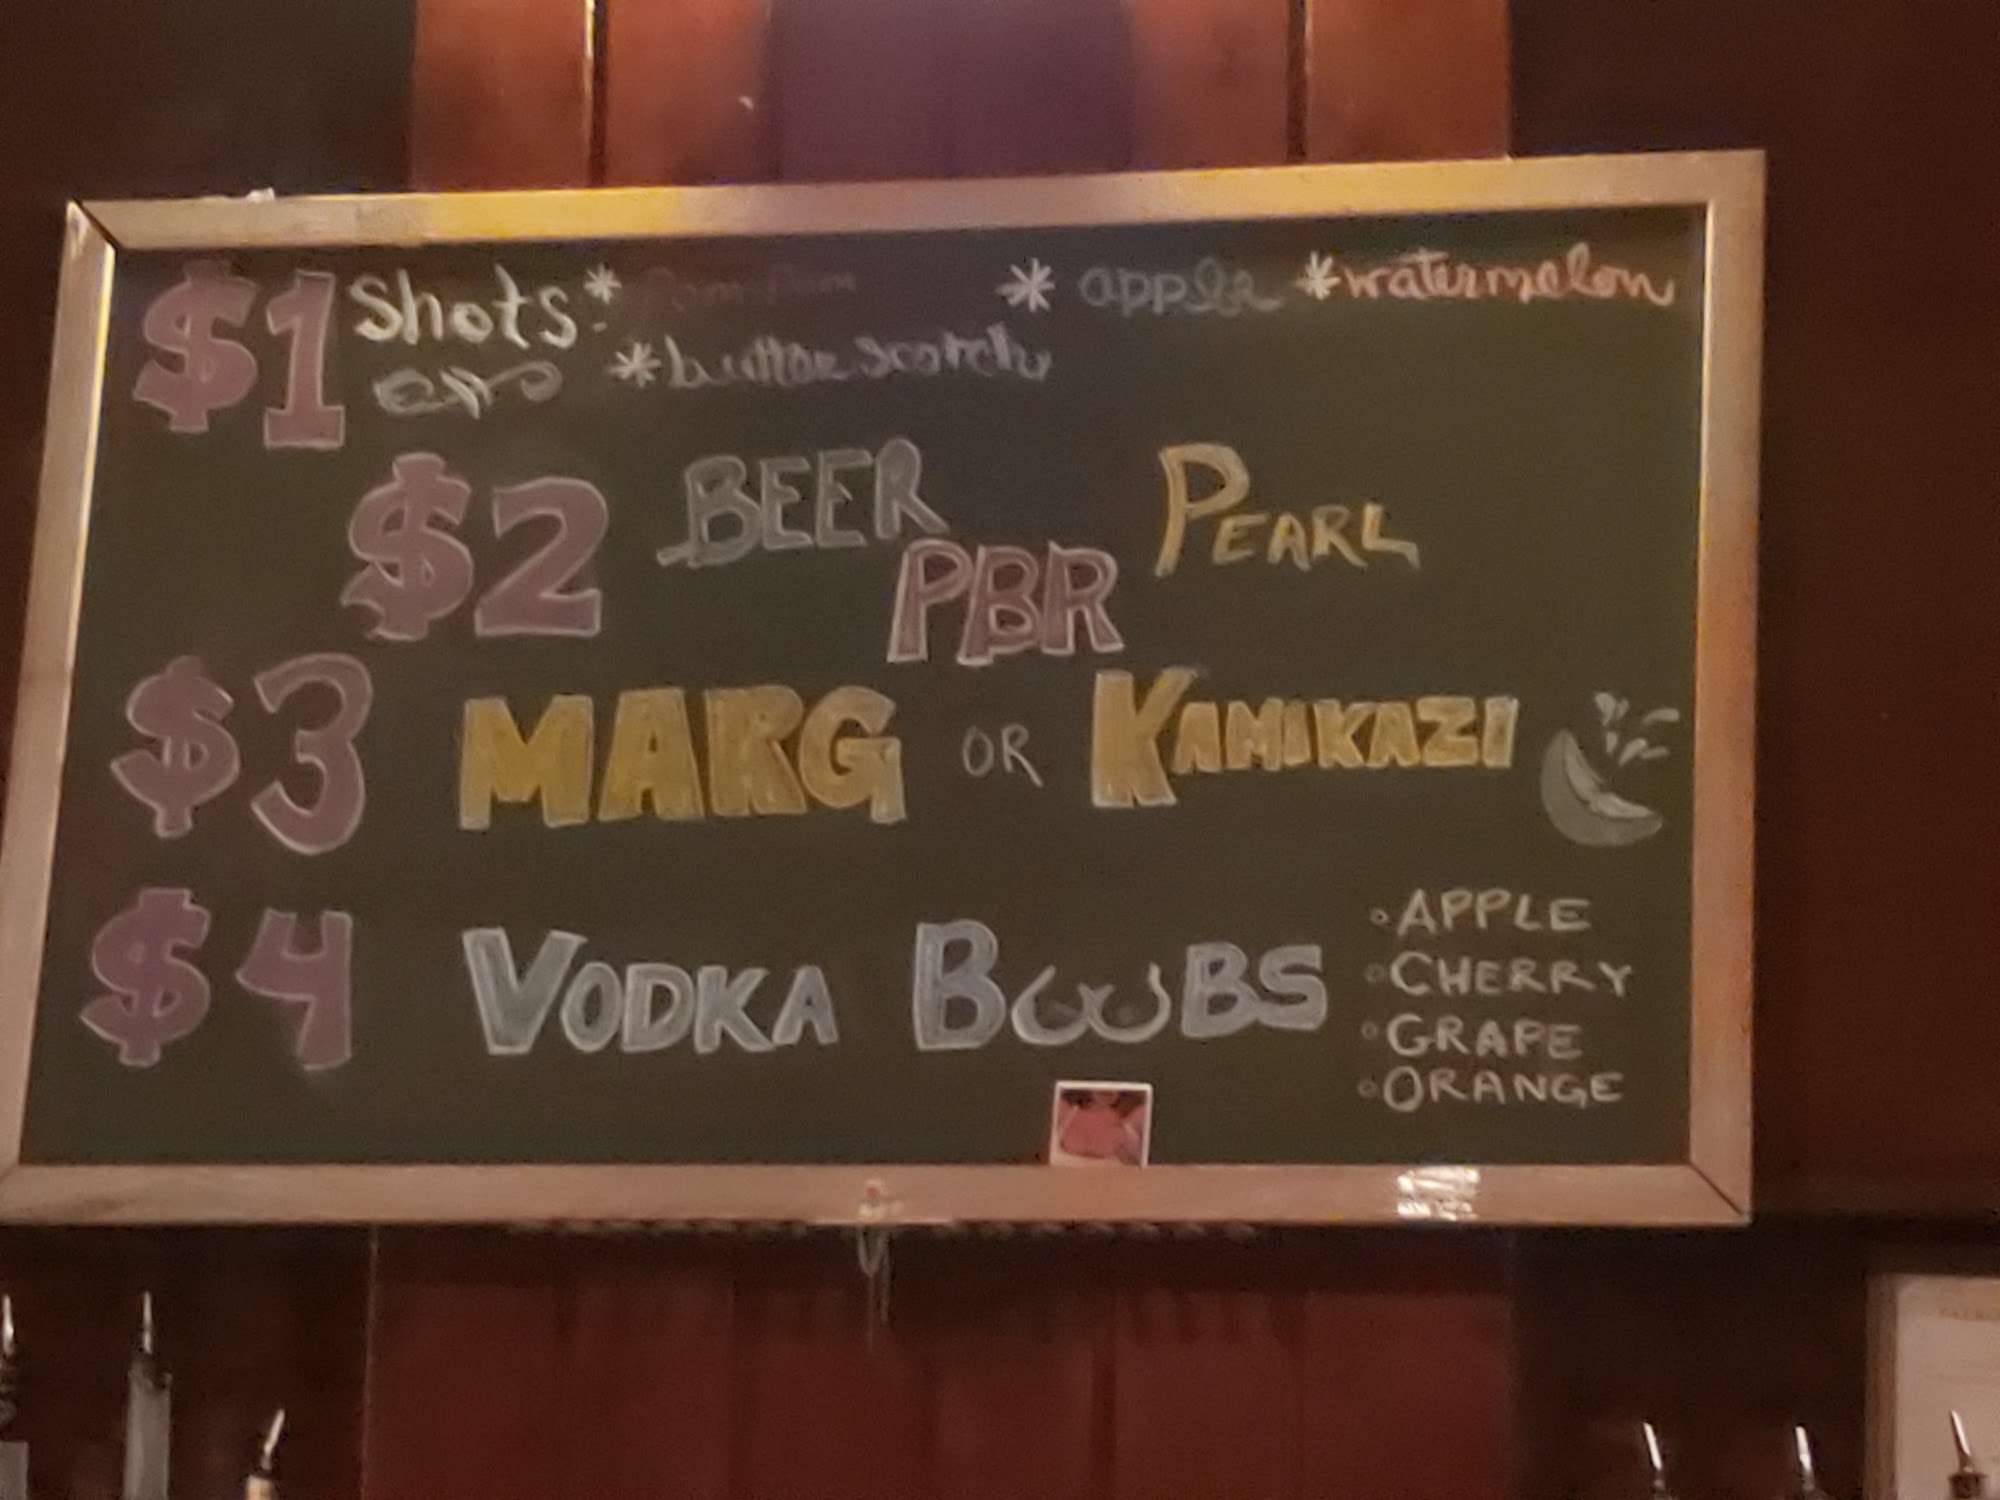 $1 Shots: * * apple * watermelon
* butterscotch
$2 BEER PEARL
PBR
$3 MARG OR KAMIKAZI
$4 VODKA BOOBS
APPLE
CHERRY
GRAPE
ORANGE